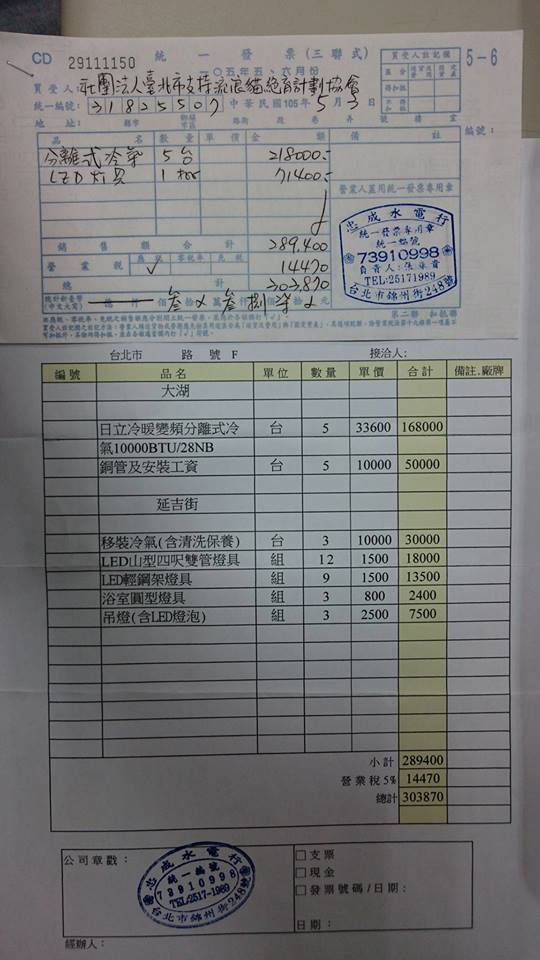 CD 29111150 統一發票(三聯式) 5-6
一○五年五、六月份
買受人註記欄
買受人:社團法人臺北市支持流浪貓絕育計劃協會
統一編號:31825507 中華民國105年5月3日
地址: 縣市 鄉鎮市區 路街 段 巷 弄 號 樓 室
品名 數量 單價 金額 備註 編號:
分離式冷氣 5台 218000.-
LED灯具 1批 71400.-
營業人蓋用統一發票專用章
銷售額合計 289.400
營業稅 應稅 零稅率 免稅 14470
✓
總計 303.870
總計新臺幣(中文大寫)
忠成水電行
統一發票專用章
統一編號
73910998
負責人:張
TEL:25171989
台北市錦州街248號
第二聯 扣抵聯
台北市 路 號 F 接洽人:
編號 品名 單位 數量 單價 合計 備註.廠牌
大湖
日立冷暖變頻分離式冷 台 5 33600 168000
氣10000BTU/28NB
銅管及安裝工資 台 5 10000 50000
延吉街
移裝冷氣(含清洗保養) 台 3 10000 30000
LED山型四呎雙管燈具 組 12 1500 18000
LED輕鋼架燈具 組 9 1500 13500
浴室圓型燈具 組 3 800 2400
吊燈(含LED燈泡) 組 3 2500 7500
小計 289400
營業稅5% 14470
總計 303870
公司章戳:
忠成水電行
統一編號
73910998
TEL:2517-1989
台北市錦州街248號
□支票
□現金
□發票號碼/日期:
日期:
經辦人: